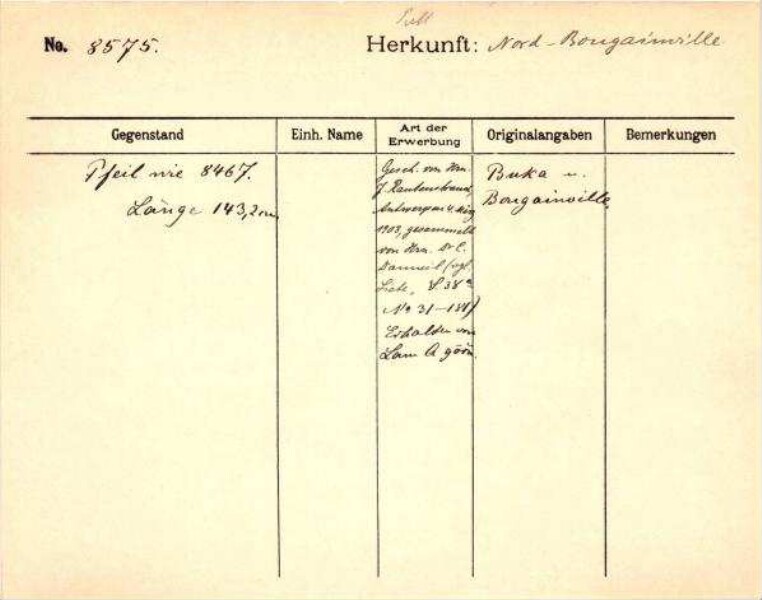 No. 8575.
Herkunft: Nord-Bougainville
Gegenstand
Einh. Name
Art der
Erwerbung
Originalangaben
Bemerkungen
Pfeil wie 8467.
Länge 143,2 cm
Gesch. von Hrn.
J. Rautenstrauch,
Antwerpen 4.
1908, gesammelt
von Hrn. Dr C.
(vgl.
Liste, S. 38a
No 31-
Erhalten von
Lam A göön.
Buka u.
Bougainville,